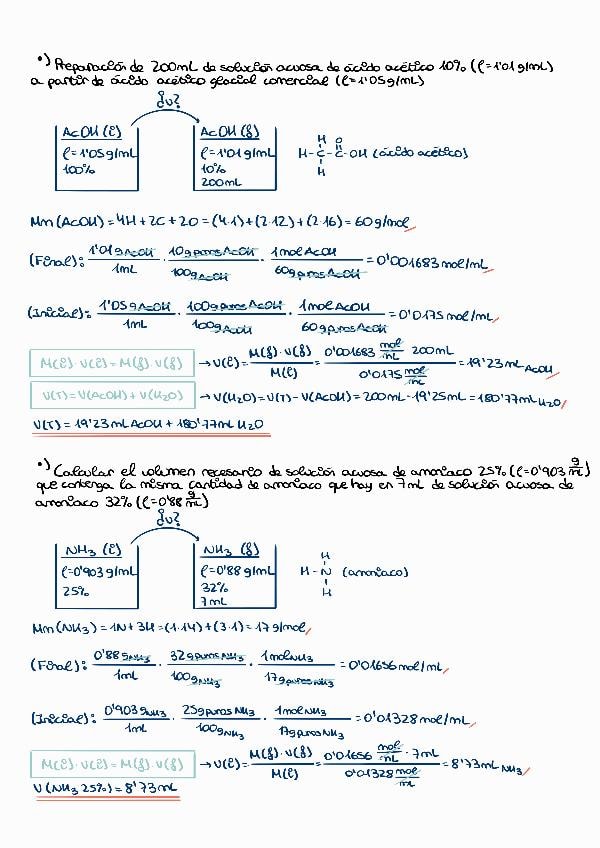 •) Preparación de 200mL de solución acuosa de ácido acético 10% (ρ=1'01g/mL)
a partir de ácido acético glacial comercial (ρ=1'05g/mL)
¿v?
AcOH (i)
ρ=1'05g/mL
100%
AcOH (f)
ρ=1'01g/mL
10%
200mL
H O
H-C-C-OH (ácido acético)
H
Mm(AcOH)=4H+2C+2O=(4·1)+(2·12)+(2·16)=60g/mol
(Final): 1'01g AcOH/1mL · 10g puros AcOH/100g AcOH · 1mol AcOH/60g puros AcOH = 0'001683 mol/mL
(Inicial): 1'05g AcOH/1mL · 100g puros AcOH/100g AcOH · 1mol AcOH/60g puros AcOH = 0'0175 mol/mL
M(i)·V(i)=M(f)·V(f) → V(i)= M(f)·V(f)/M(i) = 0'001683 mol/mL 200mL/0'0175 mol/mL = 19'23mL AcOH
V(T)=V(AcOH)+V(H₂O) → V(H₂O)=V(T)-V(AcOH)=200mL-19'25mL=180'77mL H₂O
V(T)=19'23mL AcOH + 180'77mL H₂O
•) Calcular el volumen necesario de solución acuosa de amoniaco 25% (ρ=0'903 g/mL)
que contenga la misma cantidad de amoniaco que hay en 7mL de solución acuosa de
amoniaco 32% (ρ=0'88 g/mL)
¿v?
NH₃ (i)
ρ=0'903g/mL
25%
NH₃ (f)
ρ=0'88g/mL
32%
7mL
H
H-N (amoniaco)
H
Mm(NH₃)=1N+3H=(1·14)+(3·1)=17g/mol
(Final): 0'88g NH₃/1mL · 32g puros NH₃/100g NH₃ · 1mol NH₃/17g puros NH₃ = 0'01656 mol/mL
(Inicial): 0'903g NH₃/1mL · 25g puros NH₃/100g NH₃ · 1mol NH₃/17g puros NH₃ = 0'01328 mol/mL
M(i)·V(i)=M(f)·V(f) → V(i)= M(f)·V(f)/M(i) = 0'01656 mol/mL · 7mL/0'01328 mol/mL = 8'73mL NH₃
V(NH₃ 25%)=8'73mL